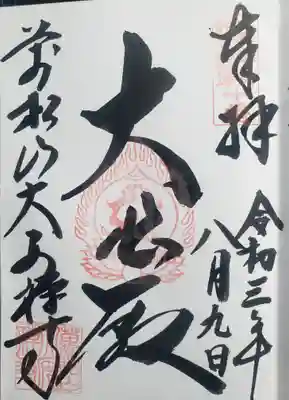 奉拝
令和三年
八月九日
大悲殿
萬松山大安禅寺